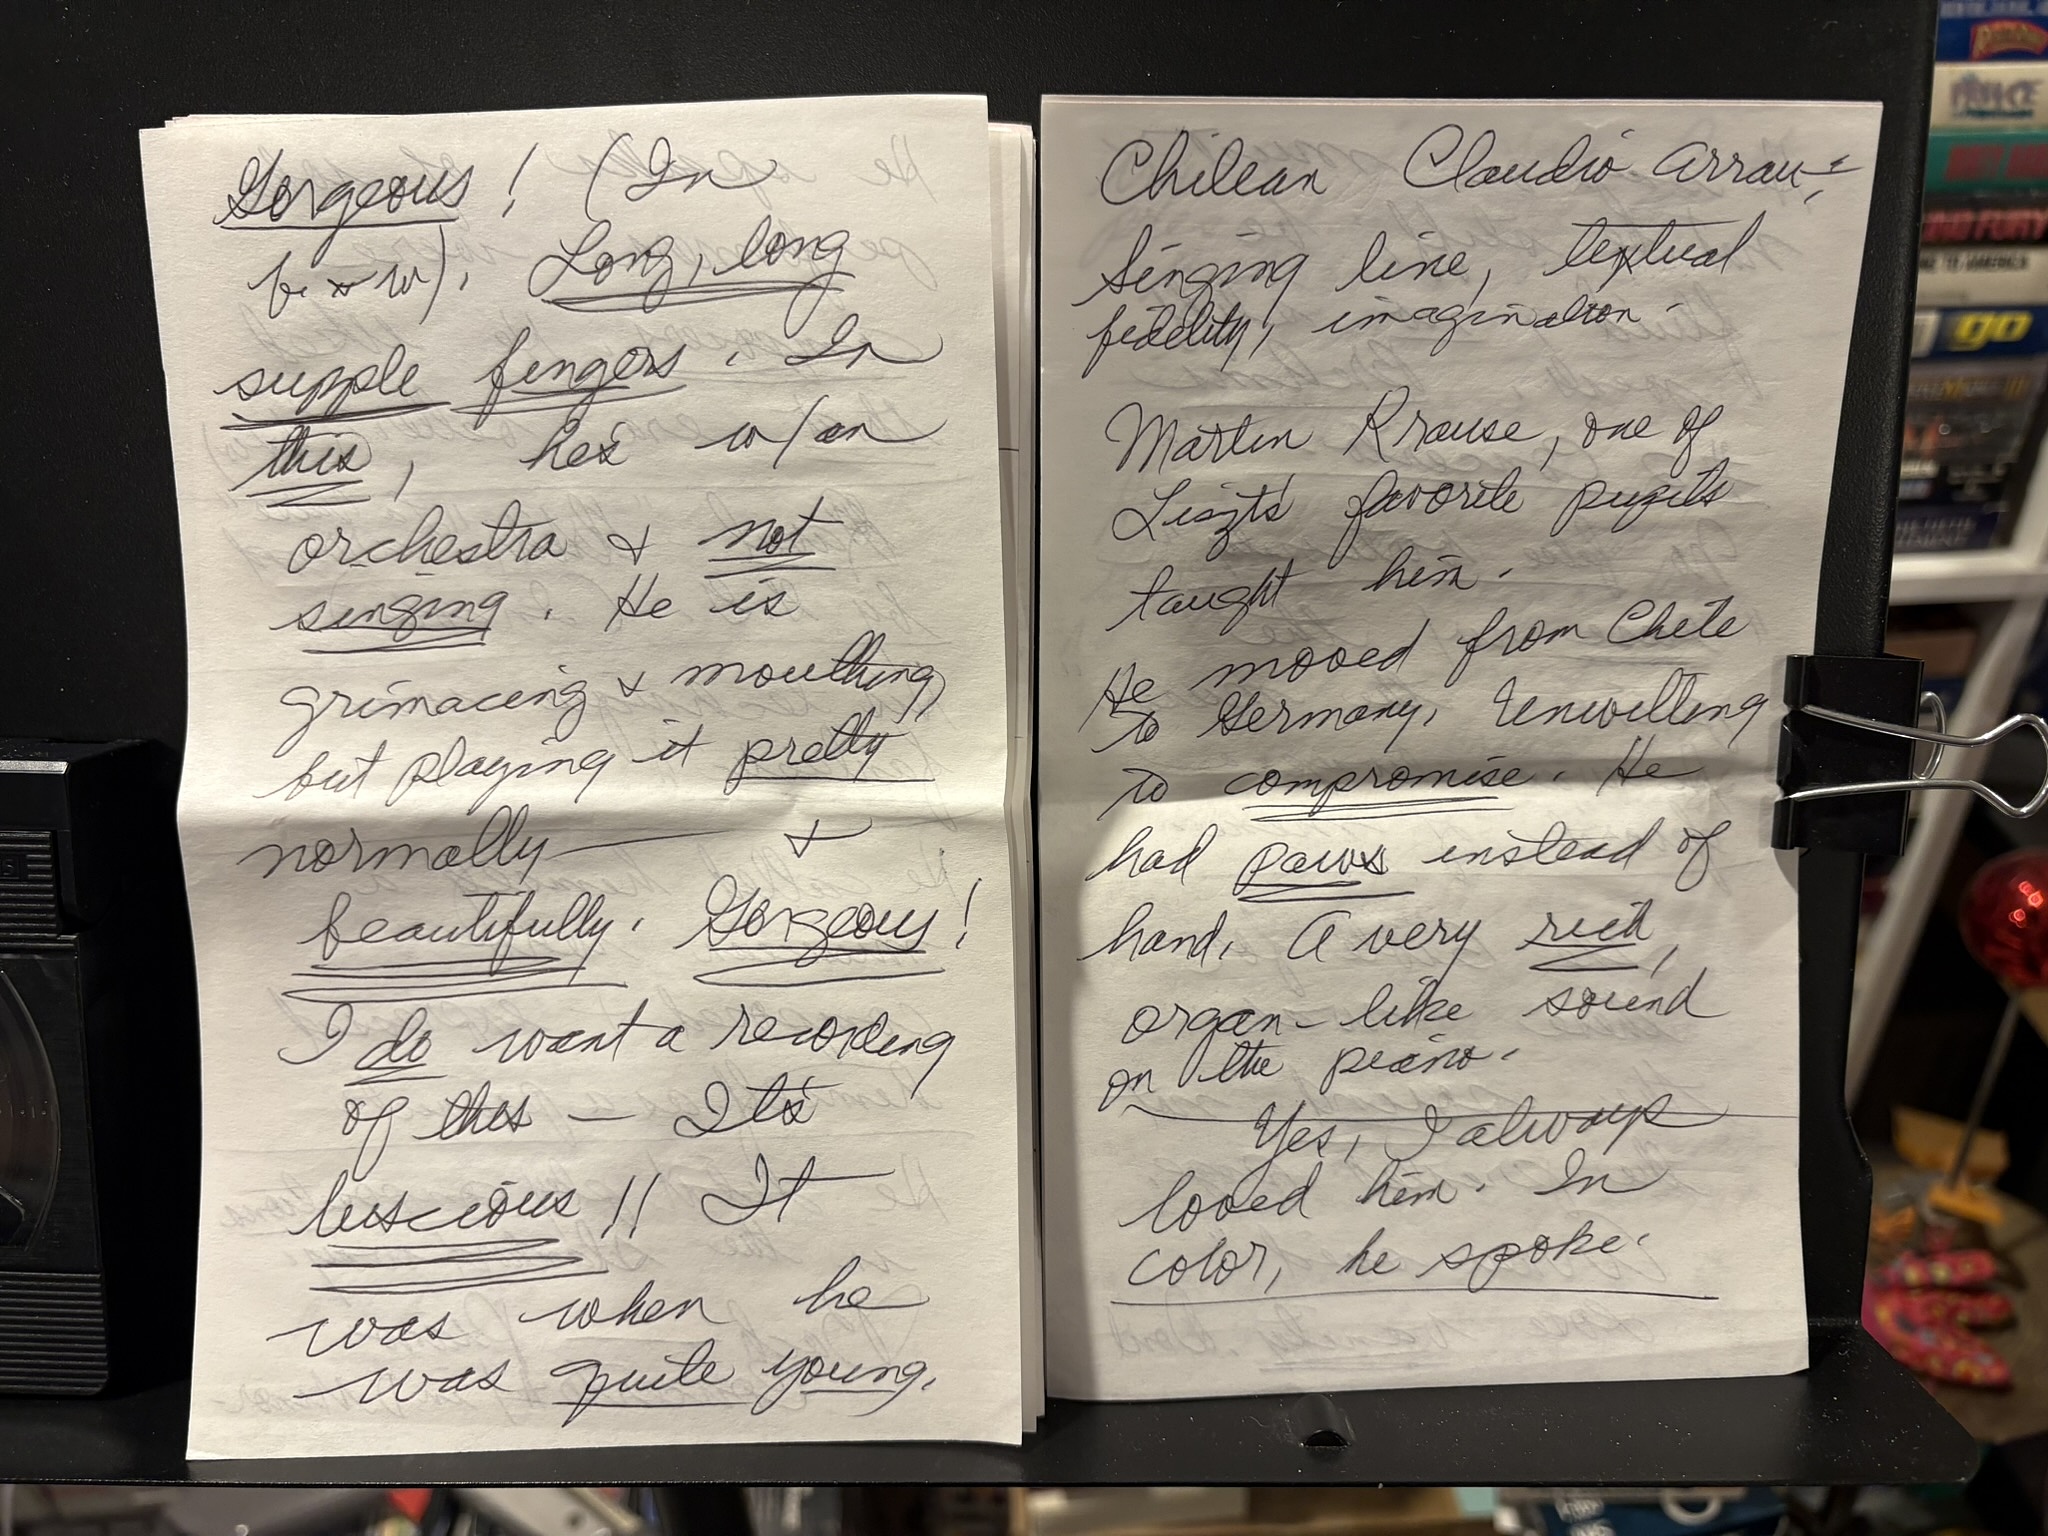 Gorgeous! (In
b + w). Long, long
supple fingers. In
this, he's w/an
orchestra & not
singing. He is
grimacing & mouthing,
but playing it pretty
normally — &
beautifully. Gorgeous!
I do want a recording
of this — It's
luscious!! It
was when he
was quite young.
Chilean Claudio Arrau:
Singing line, textual
fidelity, imagination.
Martin Krause, one of
Liszt's favorite pupils
taught him.
He moved from Chile
to Germany. Unwilling
to compromise. He
had paws instead of
hand. A very rich,
organ-like sound
on the piano.
Yes, I always
loved him. In
color, he spoke.
PRINCE
AND FURY
go